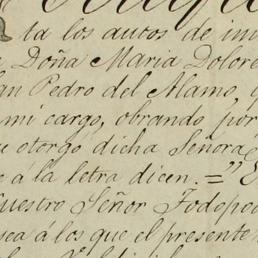 ta los autos de in
Doña Maria Dolore
an Pedro del Alamo,
mi cargo, obrando por
e otorgó dicha Señora
e á la letra dicen. =" E
uestro Señor Todopo
sea á los que el presente